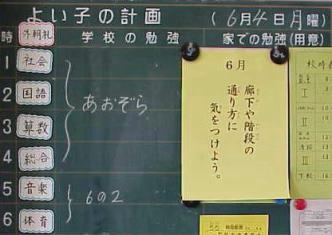 よい子の計画 (6月4日月曜)
時 外朝礼 学校の勉強 家での勉強(用意)
1 社会
2 国語
3 算数
4 総合
あおぞら
5 音楽
6 体育
6の2
6月
廊下や階段の
通り方に
気をつけよう。